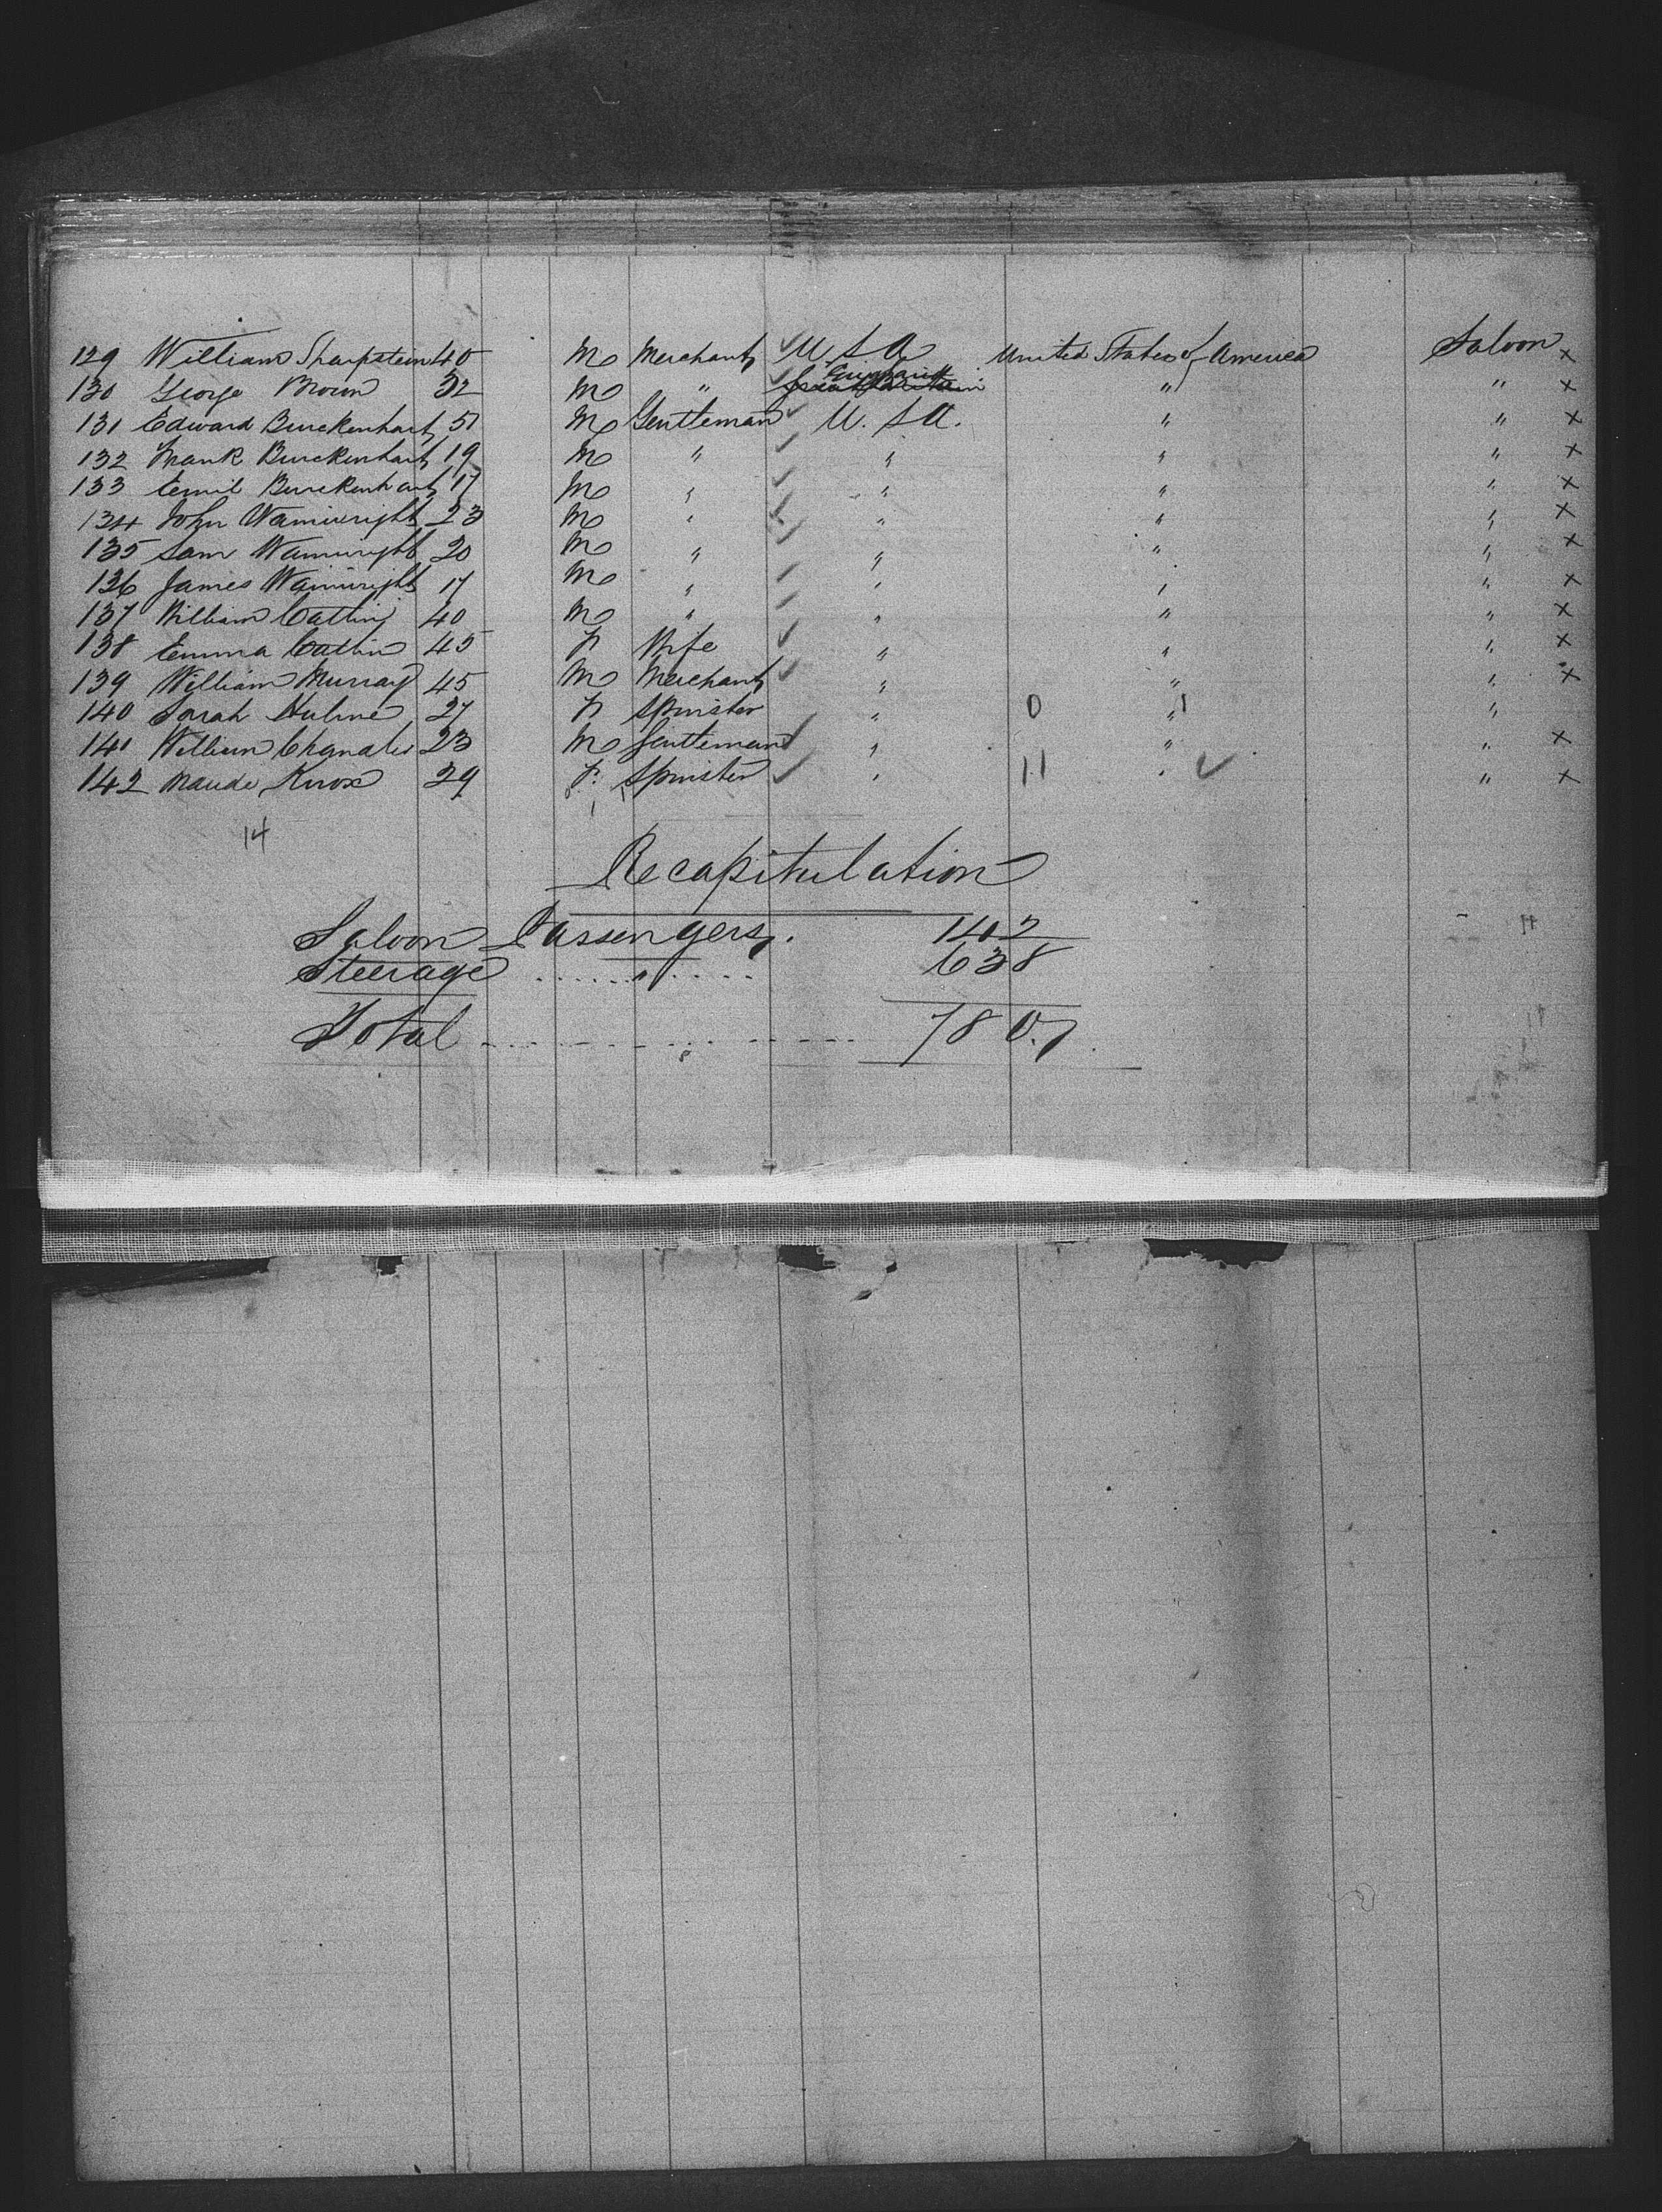 129 William Sharpstein 40 M Merchant ✓ U S A United States of America Saloon x
130 George Brown 32 M " ✓ " " x
131 Edward Burckenhart 51 M Gentleman ✓ U. S A. " " x
132 Frank Burckenhart 19 M " ✓ " " " x
133 Emil Burckenhart 17 M " ✓ " " " x
134 John Wainwright 23 M " ✓ " " " x
135 Sam Wainwright 20 M " ✓ " " " x
136 James Wainwright 17 M " ✓ " " " x
137 William Catlin 40 M " ✓ " " " x
138 Emma Catlin 45 F Wife ✓ " " " x
139 William Murray 45 M Merchant ✓ " " " x
140 Sarah Hulme 27 F Spinster " 0 " 1 "
141 William 23 M Gentleman ✓ " " " x
142 Maude Knox 29 F. Spinster ✓ " 11 " ✓ " x
14
Recapitulation
Saloon Passengers. 142
Steerage " 638
Total 780.